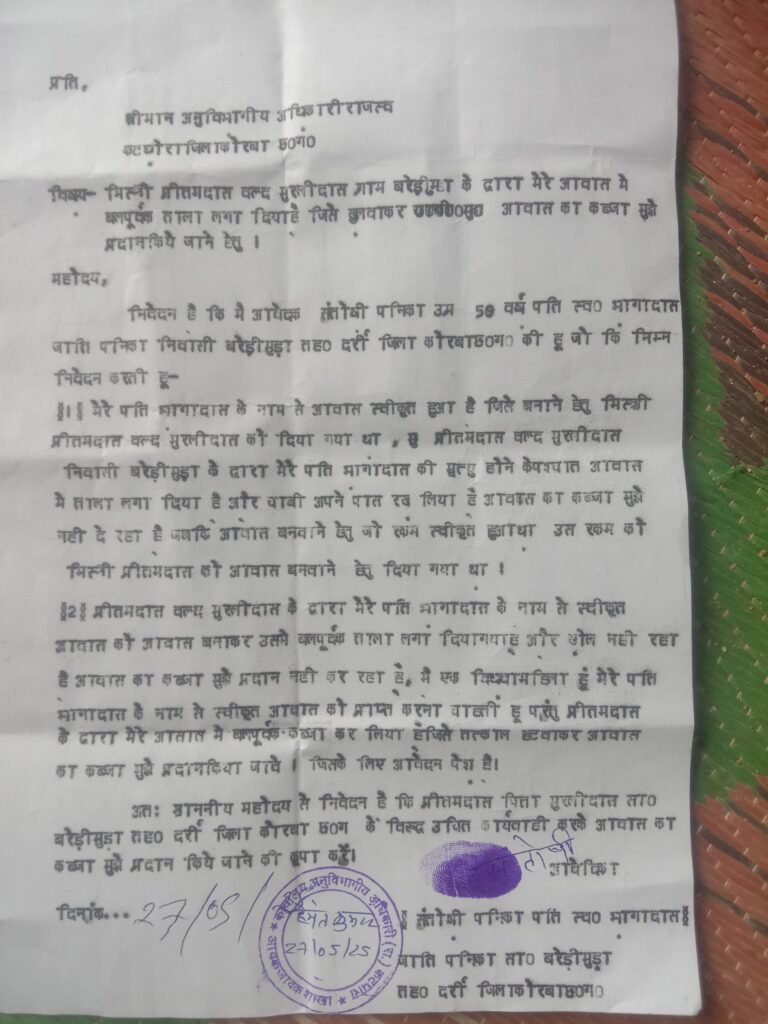 प्रति,
श्रीमान अनुविभागीय अधिकारी राजस्व
कटघोरा जिला कोरबा छ०ग०
विषय- मिस्त्री प्रीतमदास वल्द मुरलीदास ग्राम बरेड़ीमुड़ा के द्वारा मेरे आवास मे
बलपूर्वक ताला लगा दिया है जिसे खुलवाकर आवास का कब्जा मुझे
प्रदान किये जाने हेतु ।
महोदय,
निवेदन है कि मै आवेदक संतोषी पनिका उम्र 50 वर्ष पति स्व० भागादास
जाति पनिका निवासी बरेड़ीमुड़ा तह० दर्री जिला कोरबा छ०ग० की हू जो कि निम्न
निवेदन करती हू-
§1§ मेरे पति भागादास के नाम से आवास स्वीकृत हुआ है जिसे बनाने हेतु मिस्त्री
प्रीतमदास वल्द मुरलीदास को दिया गया था , प्रीतमदास वल्द मुरलीदास
निवासी बरेड़ीमुड़ा के द्वारा मेरे पति भागादास की मृत्यु होने के पश्चात आवास
मे ताला लगा दिया है और चाबी अपने पास रख लिया है आवास का कब्जा मुझे
नही दे रहा है जबकि आवास बनवाने हेतु जो रकम स्वीकृत हुआ था उस रकम को
मिस्त्री प्रीतमदास को आवास बनवाने हेतु दिया गया था ।
§2§ प्रीतमदास वल्द मुरलीदास के द्वारा मेरे पति भागादास के नाम से स्वीकृत
आवास को आवास बनाकर उसमे बलपूर्वक ताला लगा दिया गया है और खोल नही रहा
है आवास का कब्जा मुझे प्रदान नही कर रहा है, मै एक विधवा महिला हूं मेरे पति
भागादास के नाम से स्वीकृत आवास को प्राप्त करना चाहती हू परंतु प्रीतमदास
के द्वारा मेरे आवास मे बलपूर्वक कब्जा कर लिया है जिसे तत्काल हटवाकर आवास
का कब्जा मुझे प्रदान किया जावे । जिसके लिए आवेदन पेश है।
अतः माननीय महोदय से निवेदन है कि प्रीतमदास पिता मुरलीदास सा०
बरेड़ीमुड़ा तह० दर्री जिला कोरबा छ०ग के विरूद्ध उचित कार्यवाही करके आवास का
कब्जा मुझे प्रदान किये जाने की कृपा करें।
संतोषी
आवेदिका
दिनांक... 27/05/
कार्यालय अनुविभागीय अधिकारी (रा.) कटघोरा
हेमंत कुमार
27/05/25
आवक जावक शाखा
§ संतोषी पनिका पति स्व० भागादास§
जाति पनिका सा० बरेड़ीमुड़ा
तह० दर्री जिला कोरबा छ०ग०